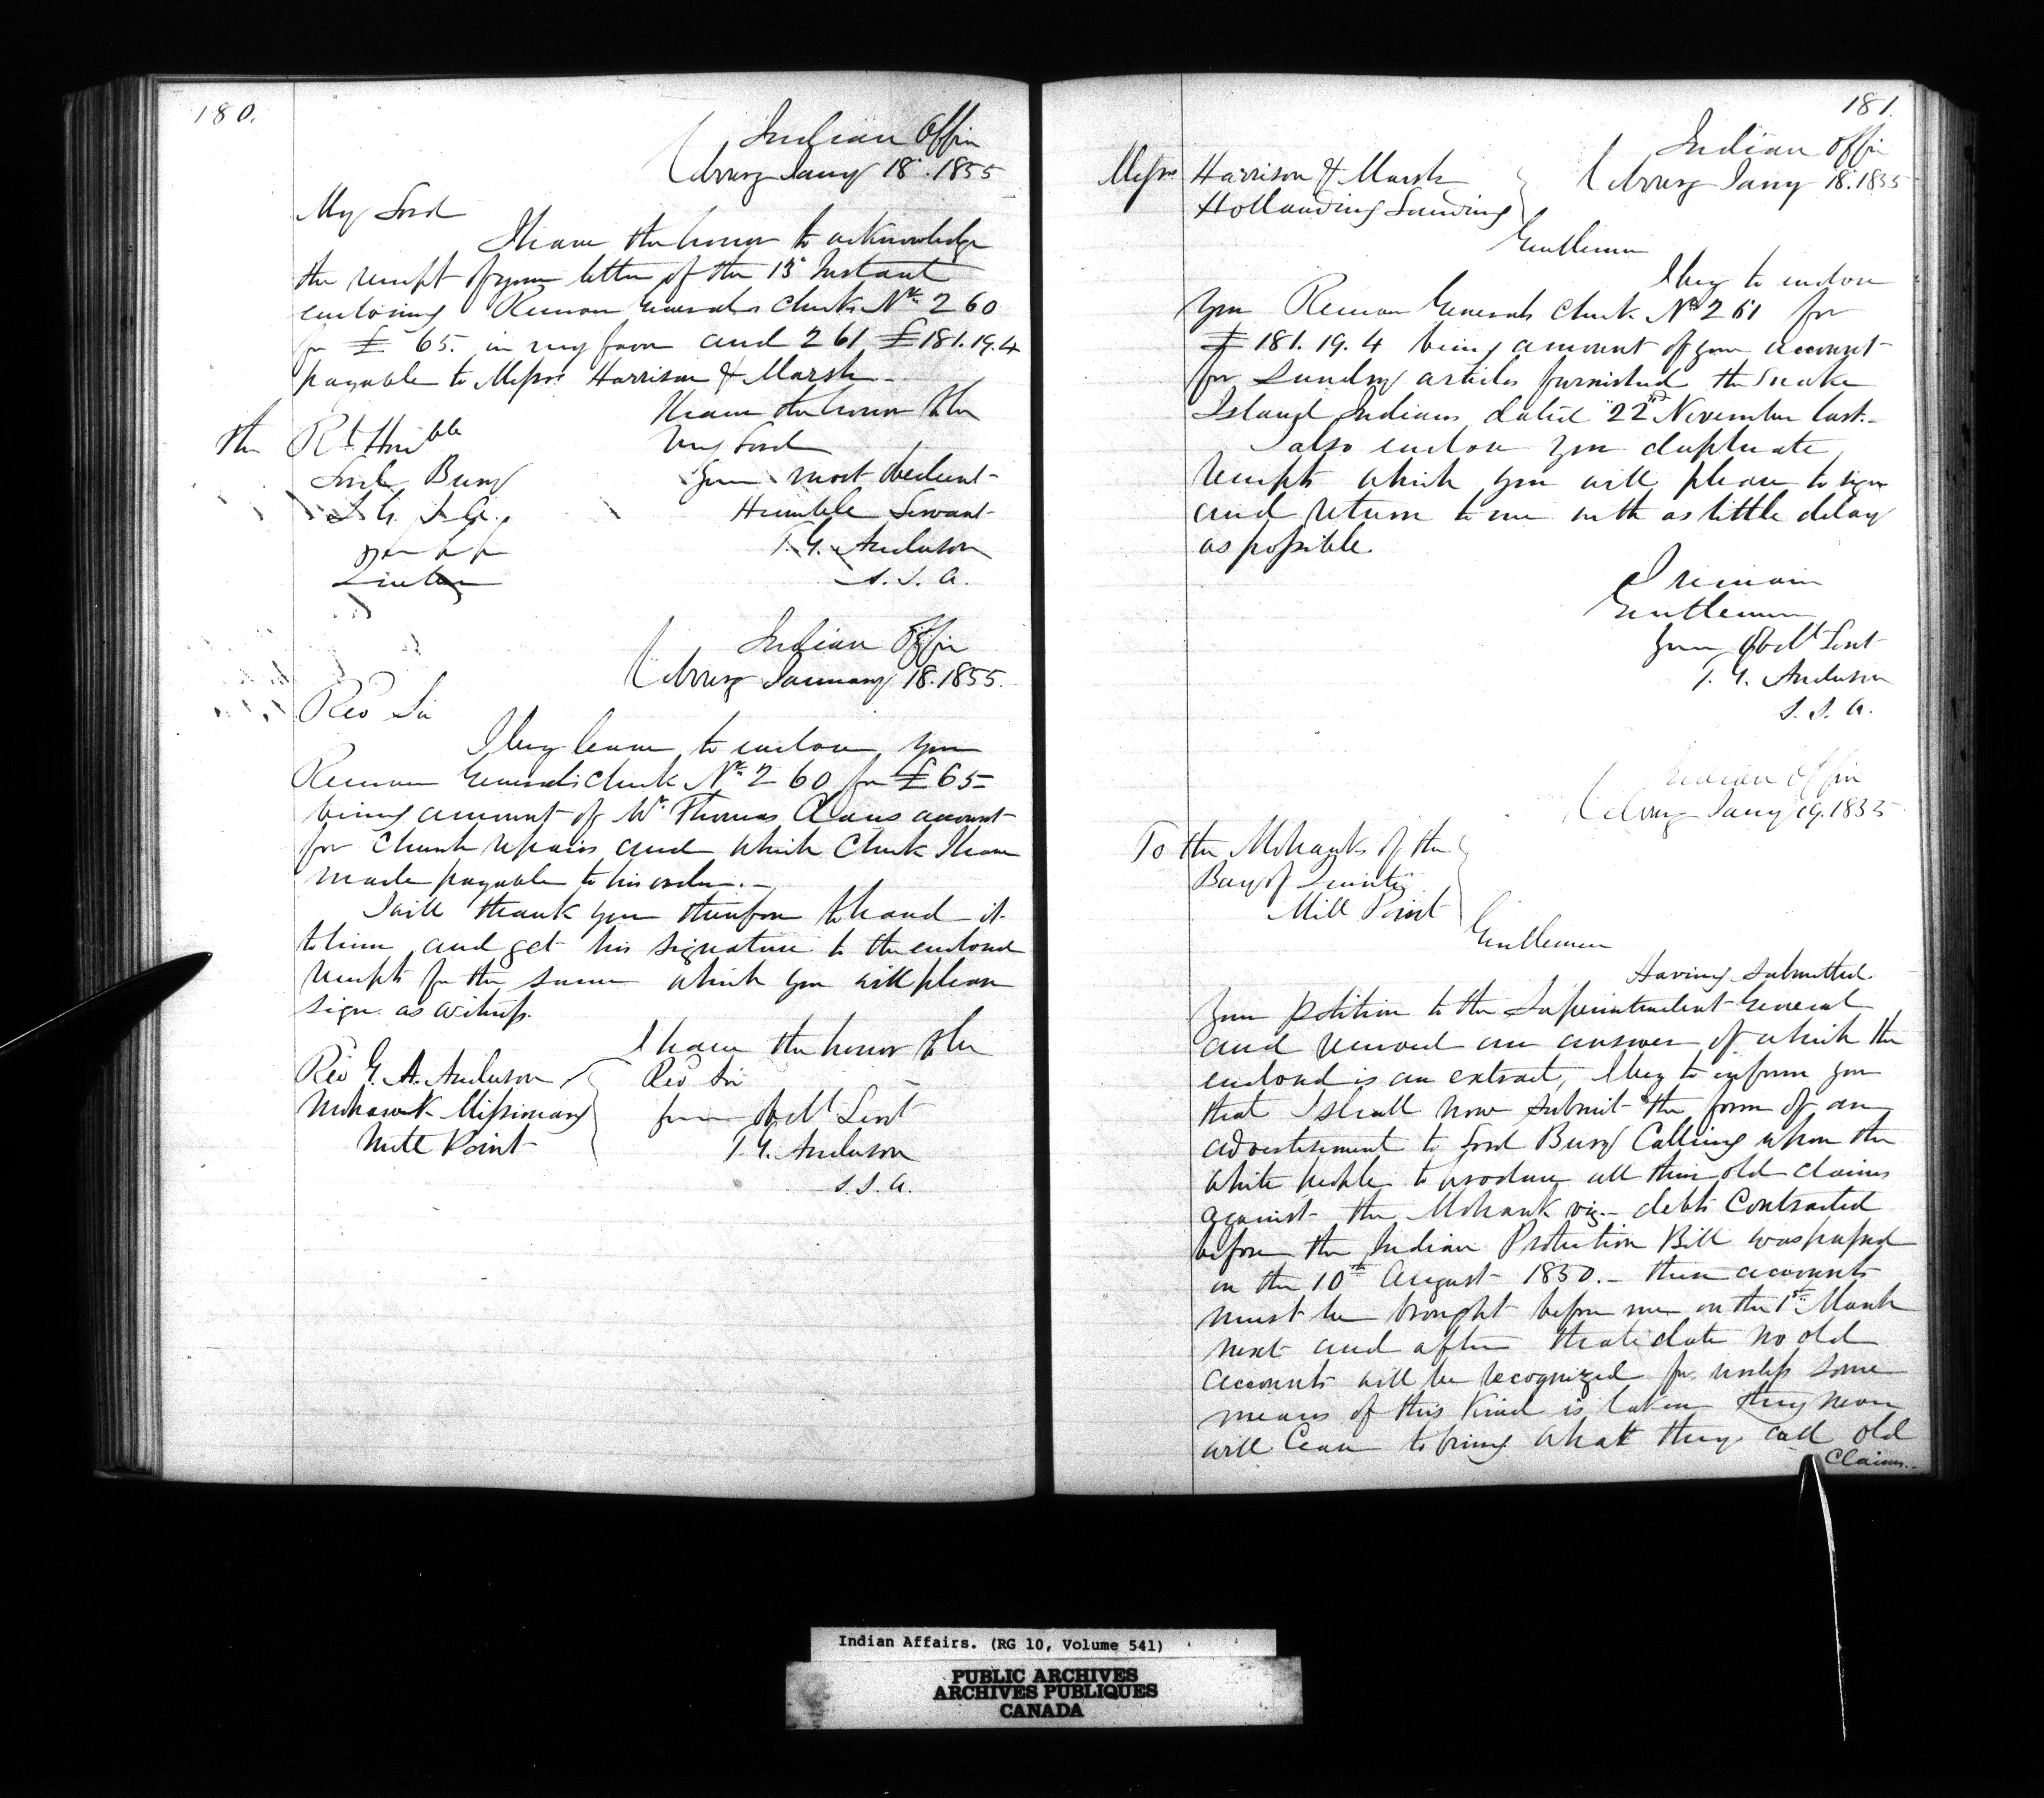 180.
Indian Office
Cobourg Jany 18. 1855
My Lord
I have the honor to acknowledge
the receipt of your letter of the 13th Instant
enclosing Receiver Generals check Nr. 260
for £ 65. in my favor and 261 £181.19.4
payable to Messrs Harrison & Marsh.
I have the honor to be
My Lord
Your most obedient
Humble Servant
T. G. Anderson
S. I. A.
The Rt Honble
Lord Bury
S. G. I. A.
Quebec
Indian Office
Cobourg January 18. 1855.
Rev Sir
I beg leave to enclose you
Receiver Generals check Nr. 260 for £65
being amount of Mr. Thomas Claus account
for Church repairs and which Check I have
made payable to his order.
I will thank you therefore to hand it
to him and get his signature to the enclosed
receipts for the same which you will please
sign as witness.
I have the honor to be
Rev Sir
Your Obdt Servt
T. G. Anderson
S. I. A.
Rev G. A. Anderson
Mohawk Missionary
Mill Point
181.
Indian Office
Cobourg Jany 18. 1855
Messrs Harrison & Marsh
Holland Landing
Gentlemen
I beg to enclose
you Receiver Generals check No 261 for
£181. 19. 4 being amount of your account
for Sundry articles furnished the Snake
Island Indians dated 22nd November last.
I also enclose you duplicate
receipts which you will please to sign
and return to me with as little delay
as possible.
I remain
Gentlemen
Your Obdt Servt
T. G. Anderson
S. I. A.
Indian Office
Cobourg Jany 19. 1855
To the Mohawks of the
Bay of Quinte
Mill Point
Gentlemen
Having submitted
your petition to the Superintendent General
and received an answer of which the
enclosed is an extract, I beg to inform you
that I shall now submit the form of an
advertisement to Lord Bury Calling upon the
white people to produce all their old claims
against the Mohawk viz. debts Contracted
before the Indian Protection Bill was passed
on the 10th August 1850. – these accounts
must be brought before me on the 1st March
next and after that date no old
accounts will be recognized for unless some
means of this Kind is taken they never
will Cease to bring what they call old
Claims.
Indian Affairs. (RG 10, Volume 541)
PUBLIC ARCHIVES
ARCHIVES PUBLIQUES
CANADA